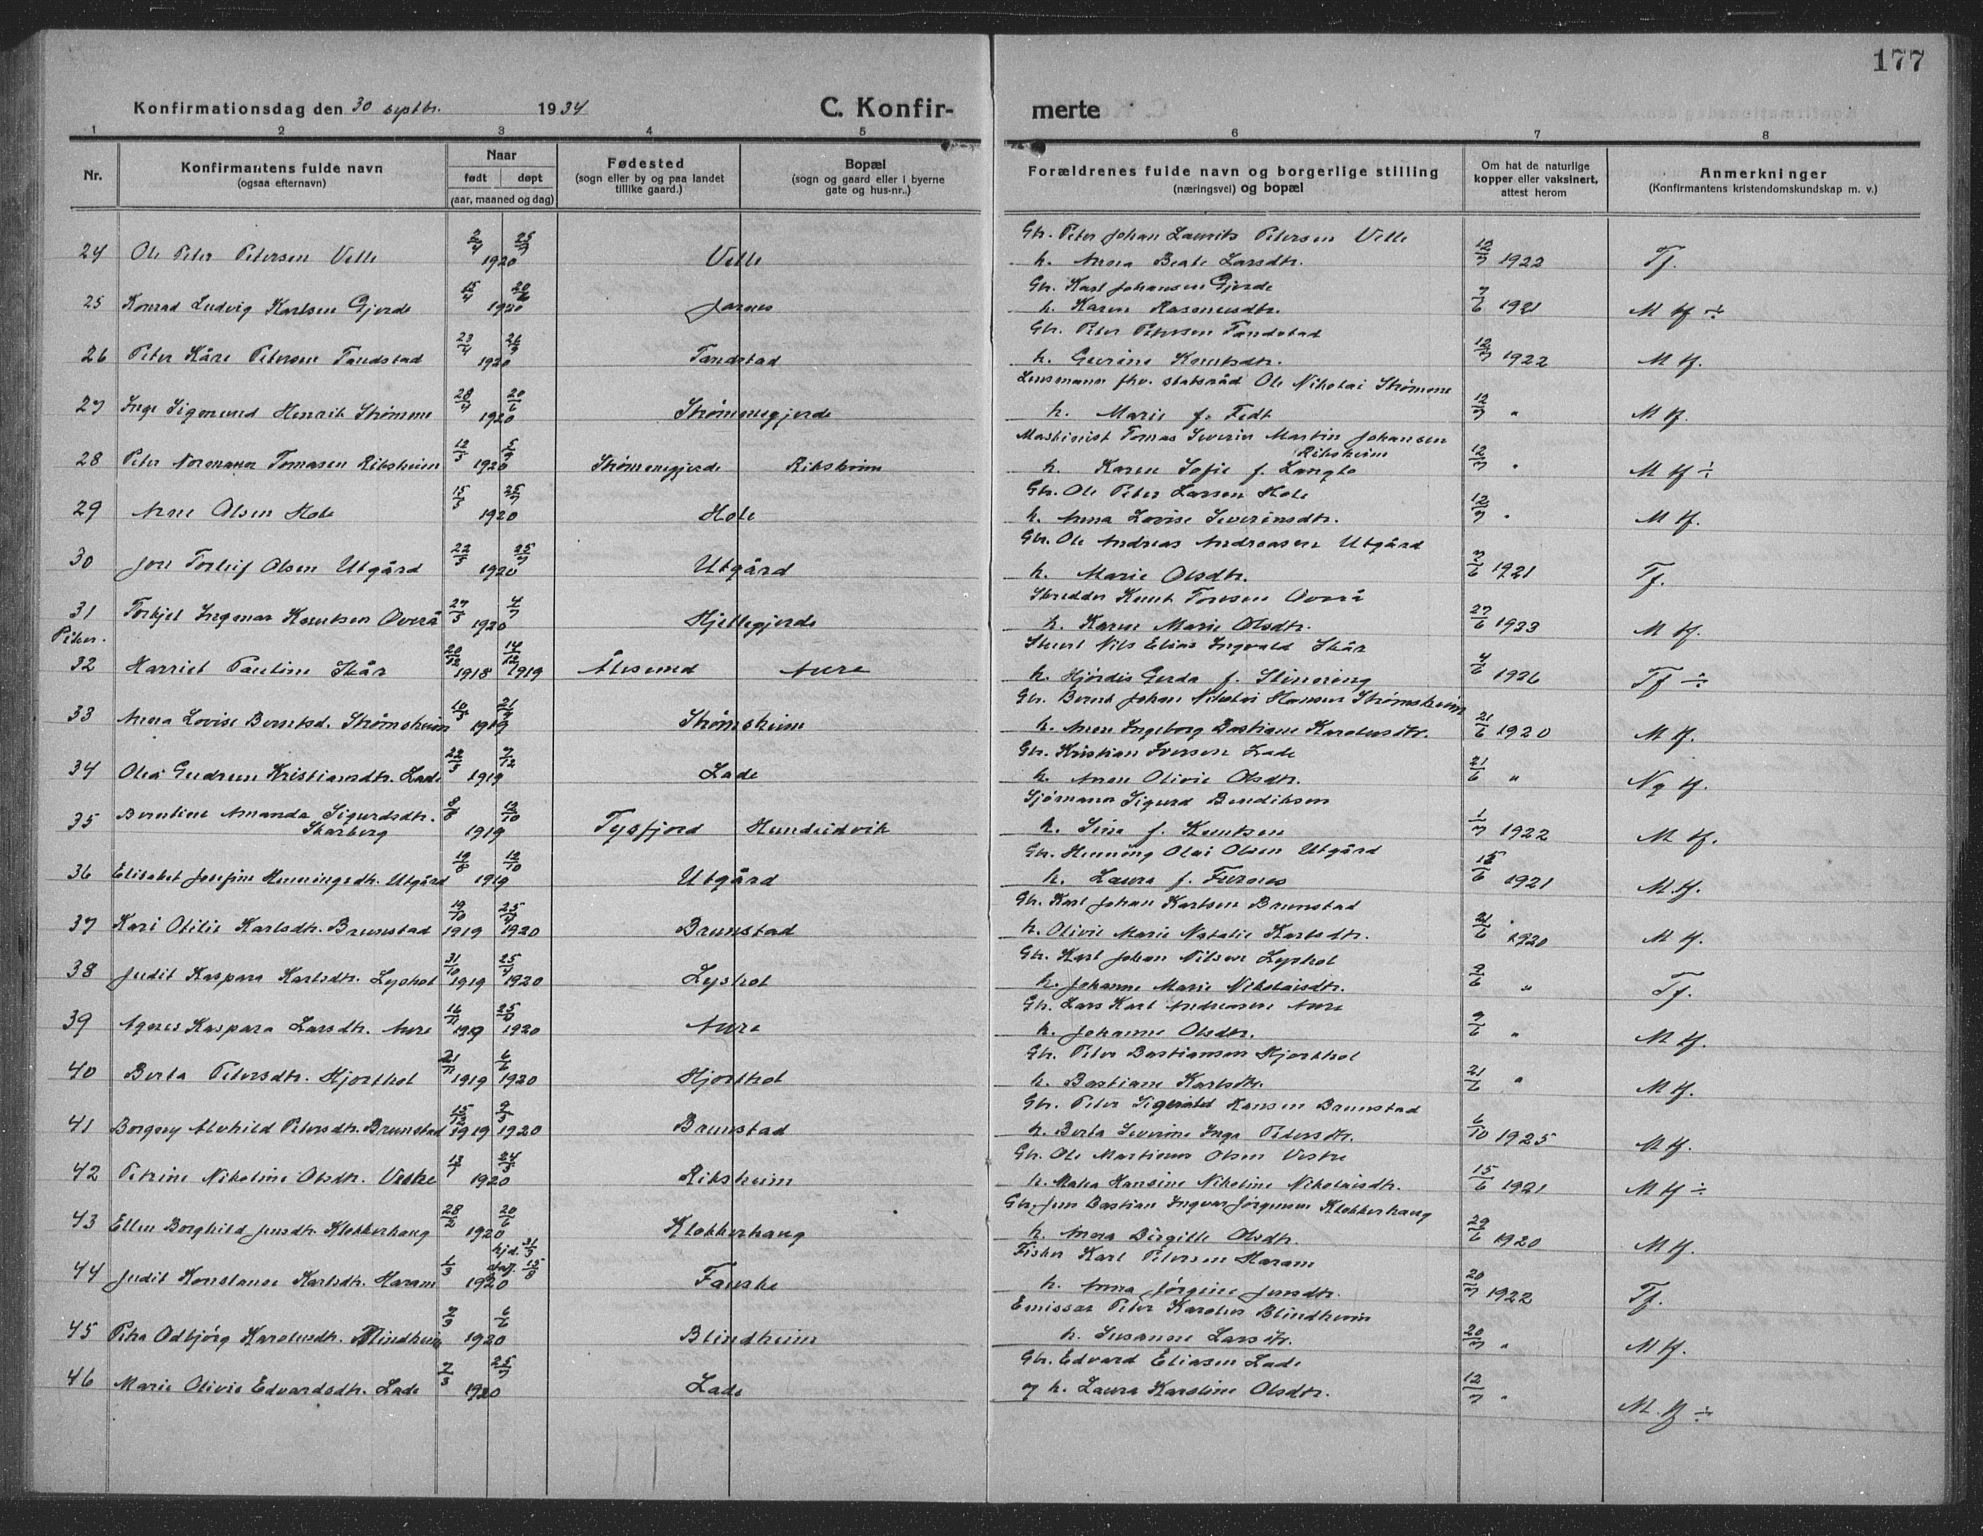 177
Konfirmationsdag den 30 septbr. 1934
C. Konfir-
merte
1 2 3 4 5 6 7 8
Nr.
Konfirmantens fulde navn
(ogsaa efternavn)
Naar
født døpt
(aar, maaned og dag)
Fødested
(sogn eller by og paa landet
tillike gaard.)
Bopæl
(sogn og gaard eller i byerne
gate og hus-nr..)
Forældrenes fulde navn og borgerlige stilling
(næringsvei) og bopæl
Om hat de naturlige
kopper eller vaksinert,
attest herom
Anmerkninger
(Konfirmantens kristendomskundskap m. v.)
Gbr. Peter Johan Laurits Petersen Velle
24 Ole Peter Petersen Velle 2/4 25/7 1920 Velle h. Anna Beate Larsdtr. 12/7 1922 Tf.
Gbr. Karl Johansen Gjerde
25 Konrad Ludvig Karlsen Gjerde 15/4 20/6 1920 Jarnes h. Karen Rasmusdtr. 7/6 1921 M tf ÷
Gbr. Peter Petersen Tandstad
26 Peter Kåre Petersen Tandstad 23/4 1920 Tandstad h. Gurine Knutsdtr. 12/7 1922 M tf.
Lensmann fhv. statsråd Ole Nikolai Strømme
27 Inge Sigmund Henrik Strømme 28/4 20/6 1920 Strømmegjerde h. Marie f. Fedt 12/7 " M tf.
Maskinist Tomas Severin Martin Johansen
Riksheim
28 Peter Normann Tomasen Riksheim 12/5 1920 Strømmegjerde Riksheim h. Karen Sofie f. Langlo 12/7 " M tf ÷
Gbr. Ole Peter Larsen Hole
29 Arne Olsen Hole 15/5 25/7 1920 Hole h. Anna Lovise Severinsdtr. 12/7 " M tf.
Gbr. Ole Andreas Andreassen Utgård
30 Jon Torleif Olsen Utgård 22/5 25/7 1920 Utgård h. Marie Olsdtr. 7/6 1921 Tf.
Skredder Knut Toresen Overå
31 Torkjel Ingmar Knutsen Overå 27/5 4/7 1920 Hjellegjerde h. Karen Marie Olsdtr. 27/6 1923 M tf.
Piker.
Stuert Nils Elias Ingvald Skår
32 Harriet Pauline Skår 20/12 1918 14/12 1919 Ålesund Aure h. Hjördis Gerda f. 4/6 1926 Tf ÷
Gbr. Bernt Johan Nikolai Hansen Strømsheim
33 Anna Lovise Berntsd. Strømsheim 10/5 1919 Strømsheim h. Anne Ingeborg Bastiane Karolusdtr. 21/6 1920 M tf.
Gbr. Kristian Iversen Lade
34 Olea Gudrun Kristiansdtr. Lade 22/5 7/12 1919 Lade h. Anne Olivie Olsdtr. 21/6 " Ng tf.
Sjømann Sigurd Bendiksen
35 Berntine Amanda Sigurdsdtr. 8/8 12/10
Skarberg 1919 Tysfjord Hundeidvik h. Sina f. Knutsen 1/7 1922 M tf.
Gbr. Henning Olai Olsen Utgård
36 Elisabet Josefine Henningsdtr. Utgård 19/8 12/10 1919 Utgård h. Laura f. Furnes 15/6 1921 M tf.
Gbr. Karl Johan Karlsen Brunstad
37 Kari Otilie Karlsdtr. Brunstad 19/10 1919 25/4 1920 Brunstad h. Olivie Marie Natalie Karlsdtr. 21/6 1920 M tf.
Gbr. Karl Johan Nilsen Lyshol
38 Judit Kaspara Karlsdtr. Lyshol 31/10 1919 25/4 1920 Lyshol h. Johanne Marie Nikolaisdtr. 9/6 " Tf.
Gbr. Lars Karl Andreasen Aure
39 Agnes Kaspara Larsdtr. Aure 16/11 1919 1920 Aure h. Johanne Olsdtr. 9/6 " M tf.
Gbr. Peter Bastiansen Hjorthol
40 Berta Petersdtr. Hjorthol 21/11 1919 6/6 1920 Hjorthol h. Bastiane Karlsdtr. 21/6 " M tf.
Gbr. Peter Sigvald Hansen Brunstad
41 Borgny Alvhild Petersdtr. Brunstad 15/12 1919 9/5 1920 Brunstad h. Berta Severine Inga Petersdtr. 6/10 1925 M tf.
Gbr. Ole Martinus Olsen Vestre
42 Petrine Nikoline Olsdtr. Vestre 13/1 24/5 1920 Riksheim h. Malea Hansine Nikoline Nikolaisdtr. 15/6 1921 M tf ÷
Gbr. Jens Bastian Ingvar Jørgensen Klokkerhaug
43 Ellen Borghild Jensdtr. Klokkerhaug 28/2 20/6 1920 Klokkerhaug h. Anna Birgitte Olsdtr. 29/6 1920 M tf.
Fisker Karl Petersen Haram
44 Judit Konstanse Karlsdtr. Haram 1/3 hjd. 31/3 stadf. 15/8 1920 Fauske h. Anna Jørgine Jensdtr. 20/7 1922 Tf.
Emissær Peter Karolus Blindheim
45 Petra Odbjørg Karolusdtr. Blindheim 2/3 6/6 1920 Blindheim h. Susanne Larsdtr. 20/7 " M tf.
Gbr. Edvard Eliasen Lade
46 Marie Olivie Edvardsdtr. Lade 7/3 25/7 1920 Lade og h. Laura Karoline Olsdtr. 12/7 " M. tf ÷